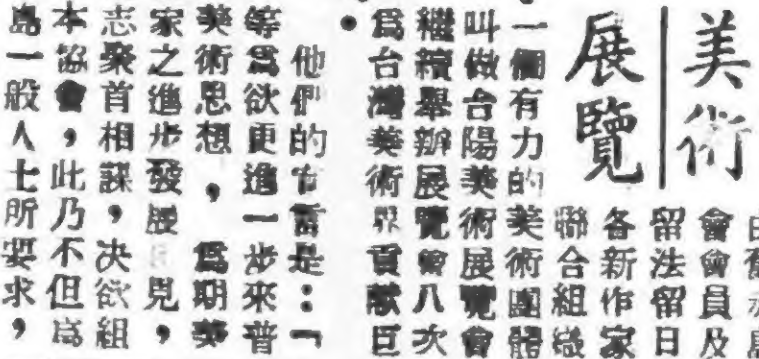 美術
展覽
會會員及
留法留日
各新作家
聯合組織
一個有力的美術團體
叫做台陽美術展覽會
繼續舉辦展覽會八次
爲台灣美術界貢獻巨
他們的宣言是：「
等爲欲更進一步來普
美術思想，爲期美
家之進步發展見，
志聚首相謀，决欲組
本協會，此乃不但爲
島一般人士所要求，